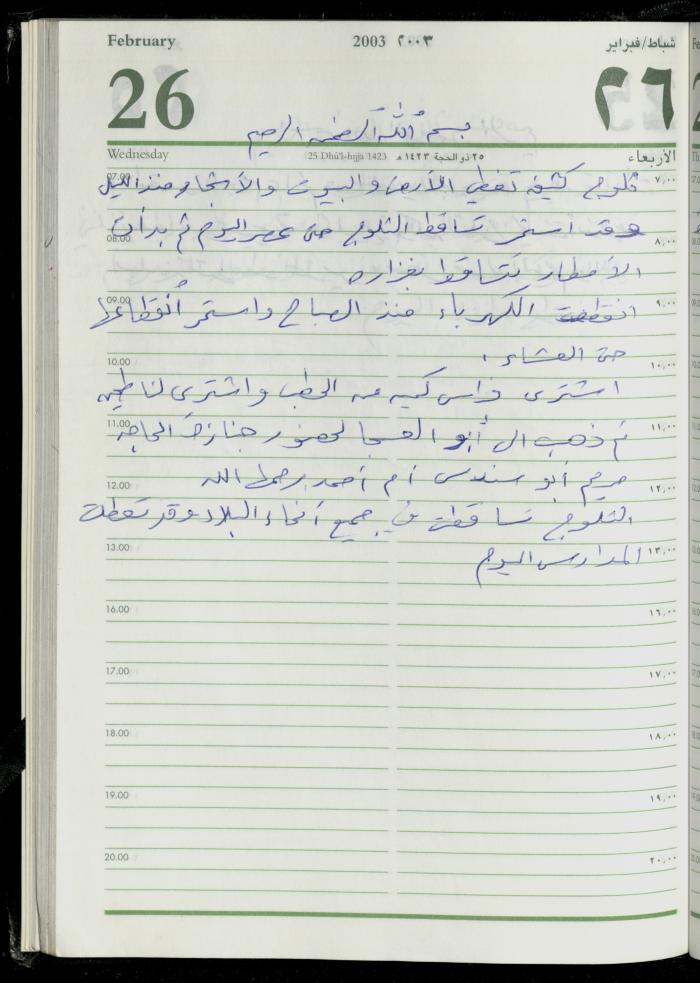 February 2003 ٢٠٠٣ شباط/فبراير
26 ٢٦
بسم الله الرحمن الرحيم
Wednesday 25 Dhú'l-hijja 1423 ٢٥ ذو الحجة ١٤٢٣ هـ الأربعاء
07.00 ثلوج كثيفة تغطي الأرض والبيوت والأشجار منذ الليل ٧,٠٠
وقد استمر تساقط الثلوج حتى عصر اليوم ثم بدأت
08.00 ٨,٠٠
الأمطار تتساقط بغزاره
09.00 ٩,٠٠
انقطعت الكهرباء منذ الصباح واستمر أنقطاعها
حتى العشاء .
10.00 ١٠,٠٠
اشترى فراس كميه من الحطب واشترى لنا
11.00 ١١,٠٠
ثم ذهب الى أبو لحضور جنازة الحاجه
مريم أبو سندس أم أحمد رحمها الله
12.00 ١٢,٠٠
الثلوج تساقطت في جميع أنحاء البلاد وقد تعطلت
13.00 ١٣,٠٠
المدارس اليوم
16.00 ١٦,٠٠
17.00 ١٧,٠٠
18.00 ١٨,٠٠
19.00 ١٩,٠٠
20.00 ٢٠,٠٠